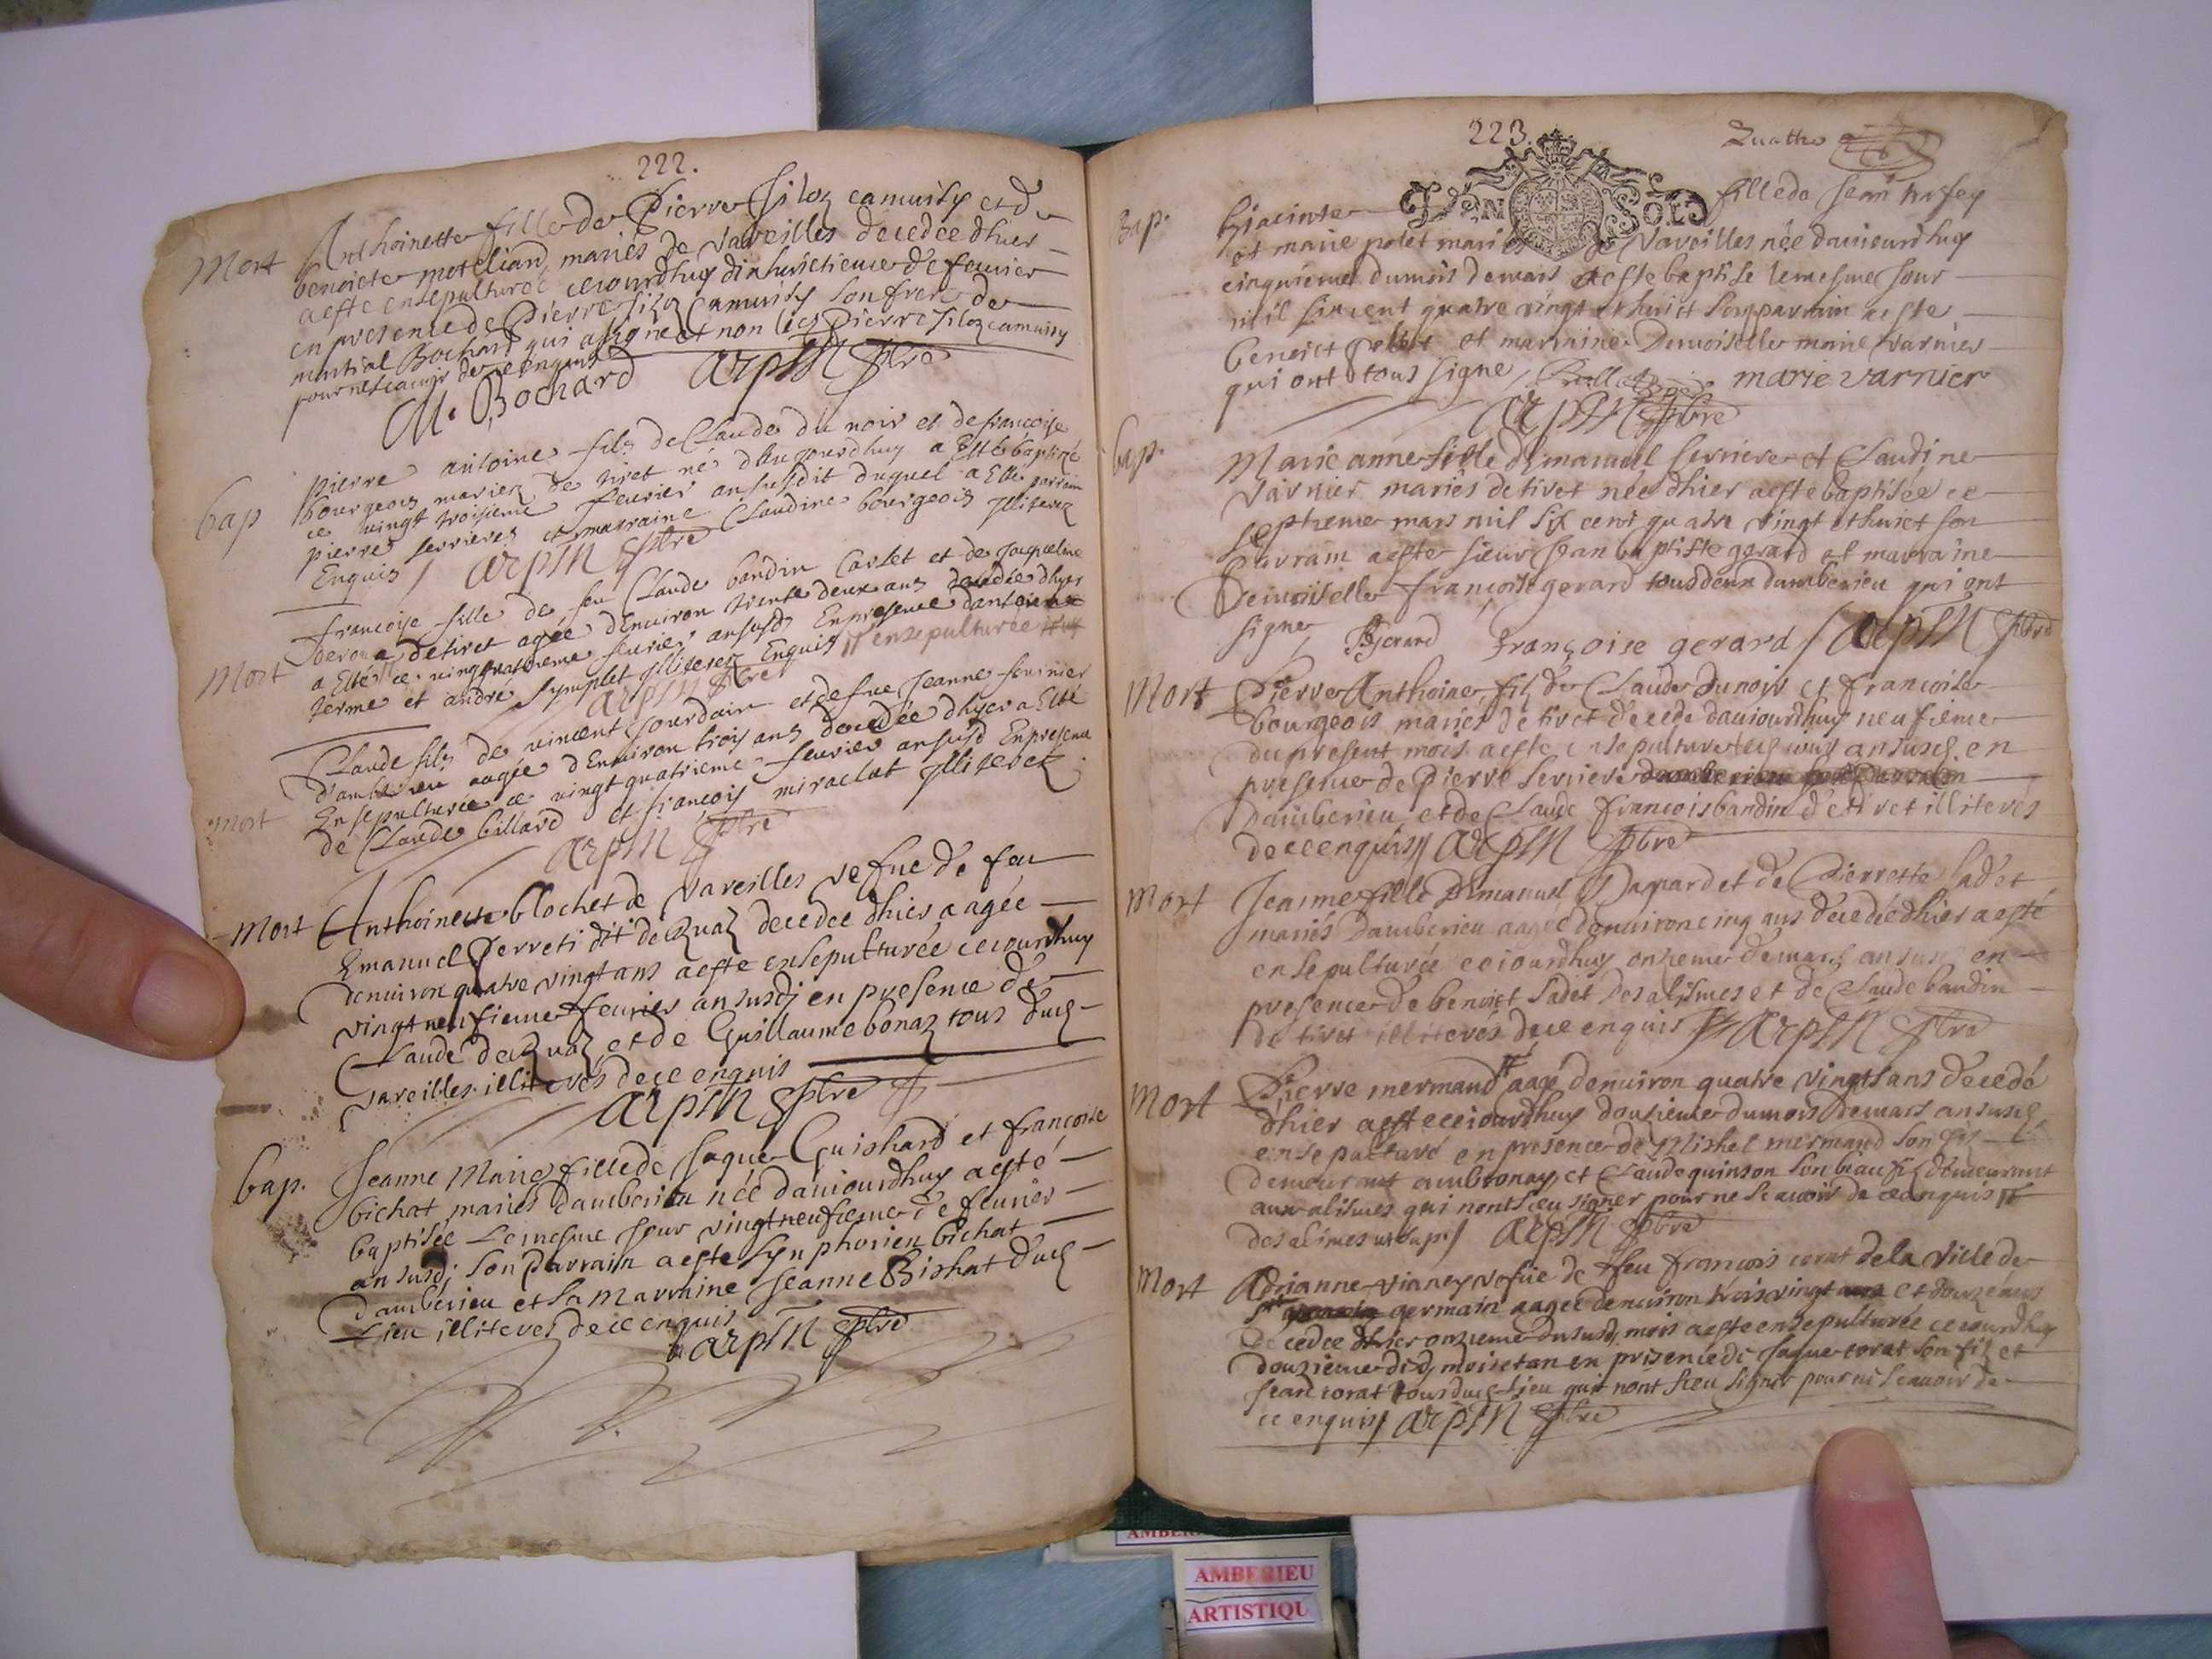 222.
Mort Anthoinette fille de Pierre Siloz camusity et de
benoicte motelland, mariés de Vareilles decedee dhier
aeste ensepulturée cejourdhuy dixhuictieme de feurier
en presence de Pierre Siloz camusity son frere de
martial Bochard qui a signe et non led Pierre Siloz camusity
pour ne scauoir de ce enquis
M. Bochard arpin pbre
bap pierre antoine fils de Claude du noir et de francoise
bourgeois mariez de tiret né daujourdhuy a Esté baptizé
ce vingt troisieme feurier an susdit duquel a Esté parrain
pierre serriere et marraine Claudine bourgeois Illiterez
Enquis / arpin pbre
Mort francoise fille de feu Claude bandin Carlet et de Jacqueline
de tiret agée d'Enuiron trente deux ans decedée dhyer
a Esté ╫ ce vingtquatrieme feurier ansusd Enpresence dantoine
terme et andre symplet Illiterez Enquis ╫ ensepulturée
arpin pbre
mort Claude fils de vincent Jourdain et de fue Jeanne fournier
d'amberieu aagée d'Enuiron trois ans decedée dhyer a Esté
Ensepulturée ce vingtquatrieme feurier ansusd Enpresence
de Claude billard et francois miraclat Illiterez
arpin pbre
Mort Anthoinette blochet de Vareilles vefue de feu
Emanuel Perreti dit de Quaz decedee dhier aagée
denuiron quatre vingt ans aeste ensepulturée cejourdhuy
vingt neufieme feurier an susd en presence de
Claude de Quaz et de Guillaume bonaz tous dud
Vareilles illiterés de ce enquis
arpin pbre
bap. Jeanne Marie fille de Jaque Guishard et francoise
bichat mariés damberieu née daujourdhuy aesté
baptisée Le mesme jour vingtneufieme de feurier
an susd; son Parrain aeste Synphorien bichat
damberieu et sa Marraine Jeanne Bishat dud
Lieu illiterés de ce enquis
arpin pbre
223. Quattre
GEN SOLD
Bap. hiacinte fille de Jean
et marie polet mariés de Vareilles née daujourdhuy
cinquieme du mois de mars aeste baptise le mesme jour
mil six cent quatre vingt et huict son parrain aeste
benoict Pollet et marraine Demoiselle marie Varnier
qui ont tous signe marie varnier
arpin pbre
bap. Marie anne fille d'Emanuel serriere et Claudine
Varnier mariés de tiret née dhier aeste baptisée ce
septieme mars mil six cent quatre vingt et huict son
Parrain aeste sieur Jean baptiste gerard et marraine
Demoiselle francoise gerard tous deux damberieu qui ont
signe / Gerard françoise gerard / arpin pbre
Mort Pierre Anthoine fils de Claude Dunoir et francoise
bourgeois mariés de tiret decede daujourdhuy neufieme
du present mois aeste ensepulturé an susd en
presence de Pierre serriere
damberieu et de Claude francois bandin de tiret illiterés
de ce enquis / arpin pbre
Mort Jeanne fille d'Emanuel Pagnard et de Pierrette sadet
mariés damberieu aagee denuiron cinq ans decedée dhier aesté
ensepulturée cejourdhuy onzieme de mars an susd en
presence de benoict sadet des alismes et de Claude bandin
de tiret illiterés de ce enquis arpin pbre
Mort Pierre mermand ╫ aagé denuiron quatre vingts ans decedé
dhier aeste cejourdhuy douzieme du mois de mars an susd
ensepulturé en presence de Mishel mermand son fils
demeurant ambronay et Claude quinson son beau fils demeurant
aux alismes qui nont sceu signer pour ne scauoir de ce enquis ╫
des alimes arpin pbre
Mort Adrianne Vianey vefue de feu francois corat de la Ville de
St germain aagee denuiron trois vingt et douze ans
Decedee dhier onzieme du susd, mois aeste ensepulturée cejourdhuy
douzieme dud, mois et an en presence de Jaque corat son fils et
Jean corat tous dud Lieu qui nont sceu signer pour ne scauoir de
ce enquis / arpin pbre
AMBERIEU
ARTISTIQU